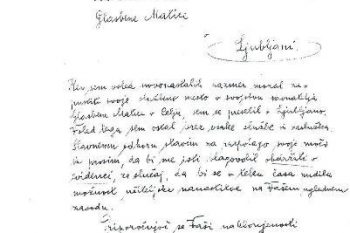 Glasbene Matici
Ljubljani.
Ker sem vsled novonastalih razmer moral za-
pustiti svoje službeno mesto v svojstvu ravnatelja
Glasbene Matice v Celju, sem se preselil v Ljubljano.
Vsled tega sem ostal brez vsake službe in zaslužka.
Slavnemu odboru stavim na razpolago svoje moči
in prosim, da bi me joti blagovolil obdržati v
evidenci, za slučaj, da bi se v teku časa nudila
možnost učiteljske namestitve na Vašem uglednem
zavodu.
Priporočujoč se Vaši naklonjenosti